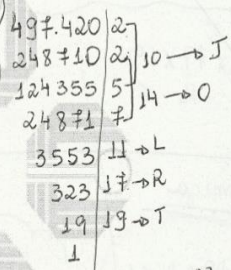 497.420 2
248710 2 10 → J
124355 5 14 → O
24871 7
3553 11 → L
323 17 → R
19 19 → T
1